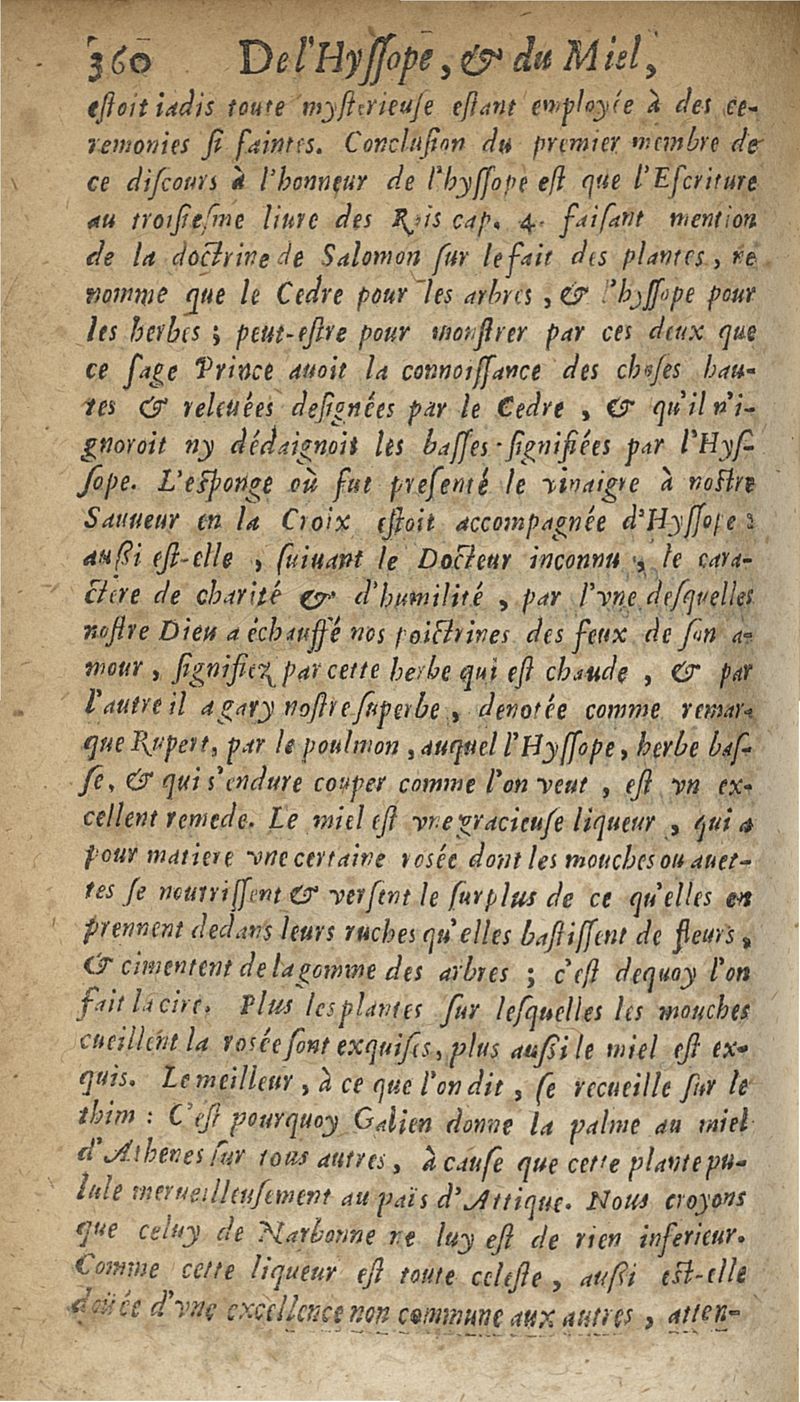 360 De l'Hyſſope, & du Miel,
eſtoit iadis toute myſterieuſe eſtant employée à des ce-
remonies ſi ſaintes. Concluſion du premier membre de
ce diſcours à l'honneur de l'hyſſope eſt que l'Eſcriture
au troiſieſme liure des Rois cap. 4. faiſant mention
de la doctrine de Salomon ſur le fait des plantes, ne
nomme que le Cedre pour les arbres, & l'hyſſope pour
les herbes ; peut-eſtre pour monſtrer par ces deux que
ce ſage Prince auoit la connoiſſance des choſes hau-
tes & releuées deſignées par le Cedre, & qu'il n'i-
gnoroit ny dédaignoit les baſſes ſignifiées par l'Hyſ-
ſope. L'eſponge où fut preſenté le vinaigre à noſtre
Sauueur en la Croix eſtoit accompagnée d'Hyſſope :
auſſi eſt-elle, ſuiuant le Docteur inconnu, le cara-
ctere de charité & d'humilité, par l'vne deſquelles
noſtre Dieu a échauffé nos poictrines des feux de ſon a-
mour, ſignifiez par cette herbe qui eſt chaude, & par
l'autre il a gary noſtre ſuperbe, denotée comme remar-
que Rupert, par le poulmon, auquel l'Hyſſope, herbe baſ-
ſe, & qui s'endure couper comme l'on veut, eſt vn ex-
cellent remede. Le miel eſt vne gracieuſe liqueur, qui a
pour matiere vne certaine roſée dont les mouches ou auet-
tes ſe nourriſſent & verſent le ſurplus de ce qu'elles en
prennent dedans leurs ruches qu'elles baſtiſſent de fleurs,
& cimentent de la gomme des arbres ; c'eſt dequoy l'on
fait la cire. Plus les plantes ſur leſquelles les mouches
cueillent la roſée ſont exquiſes, plus auſſi le miel eſt ex-
quis. Le meilleur, à ce que l'on dit, ſe recueille ſur le
thim : C'eſt pourquoy Galien donne la palme au miel
d'Athenes ſur tous autres, à cauſe que cette plante pu-
lule merueilleuſement au païs d'Attique. Nous croyons
que celuy de Narbonne ne luy eſt de rien inferieur.
Comme cette liqueur eſt toute celeſte, auſſi eſt-elle
doüée d'vne excellence non commune aux autres, atten-